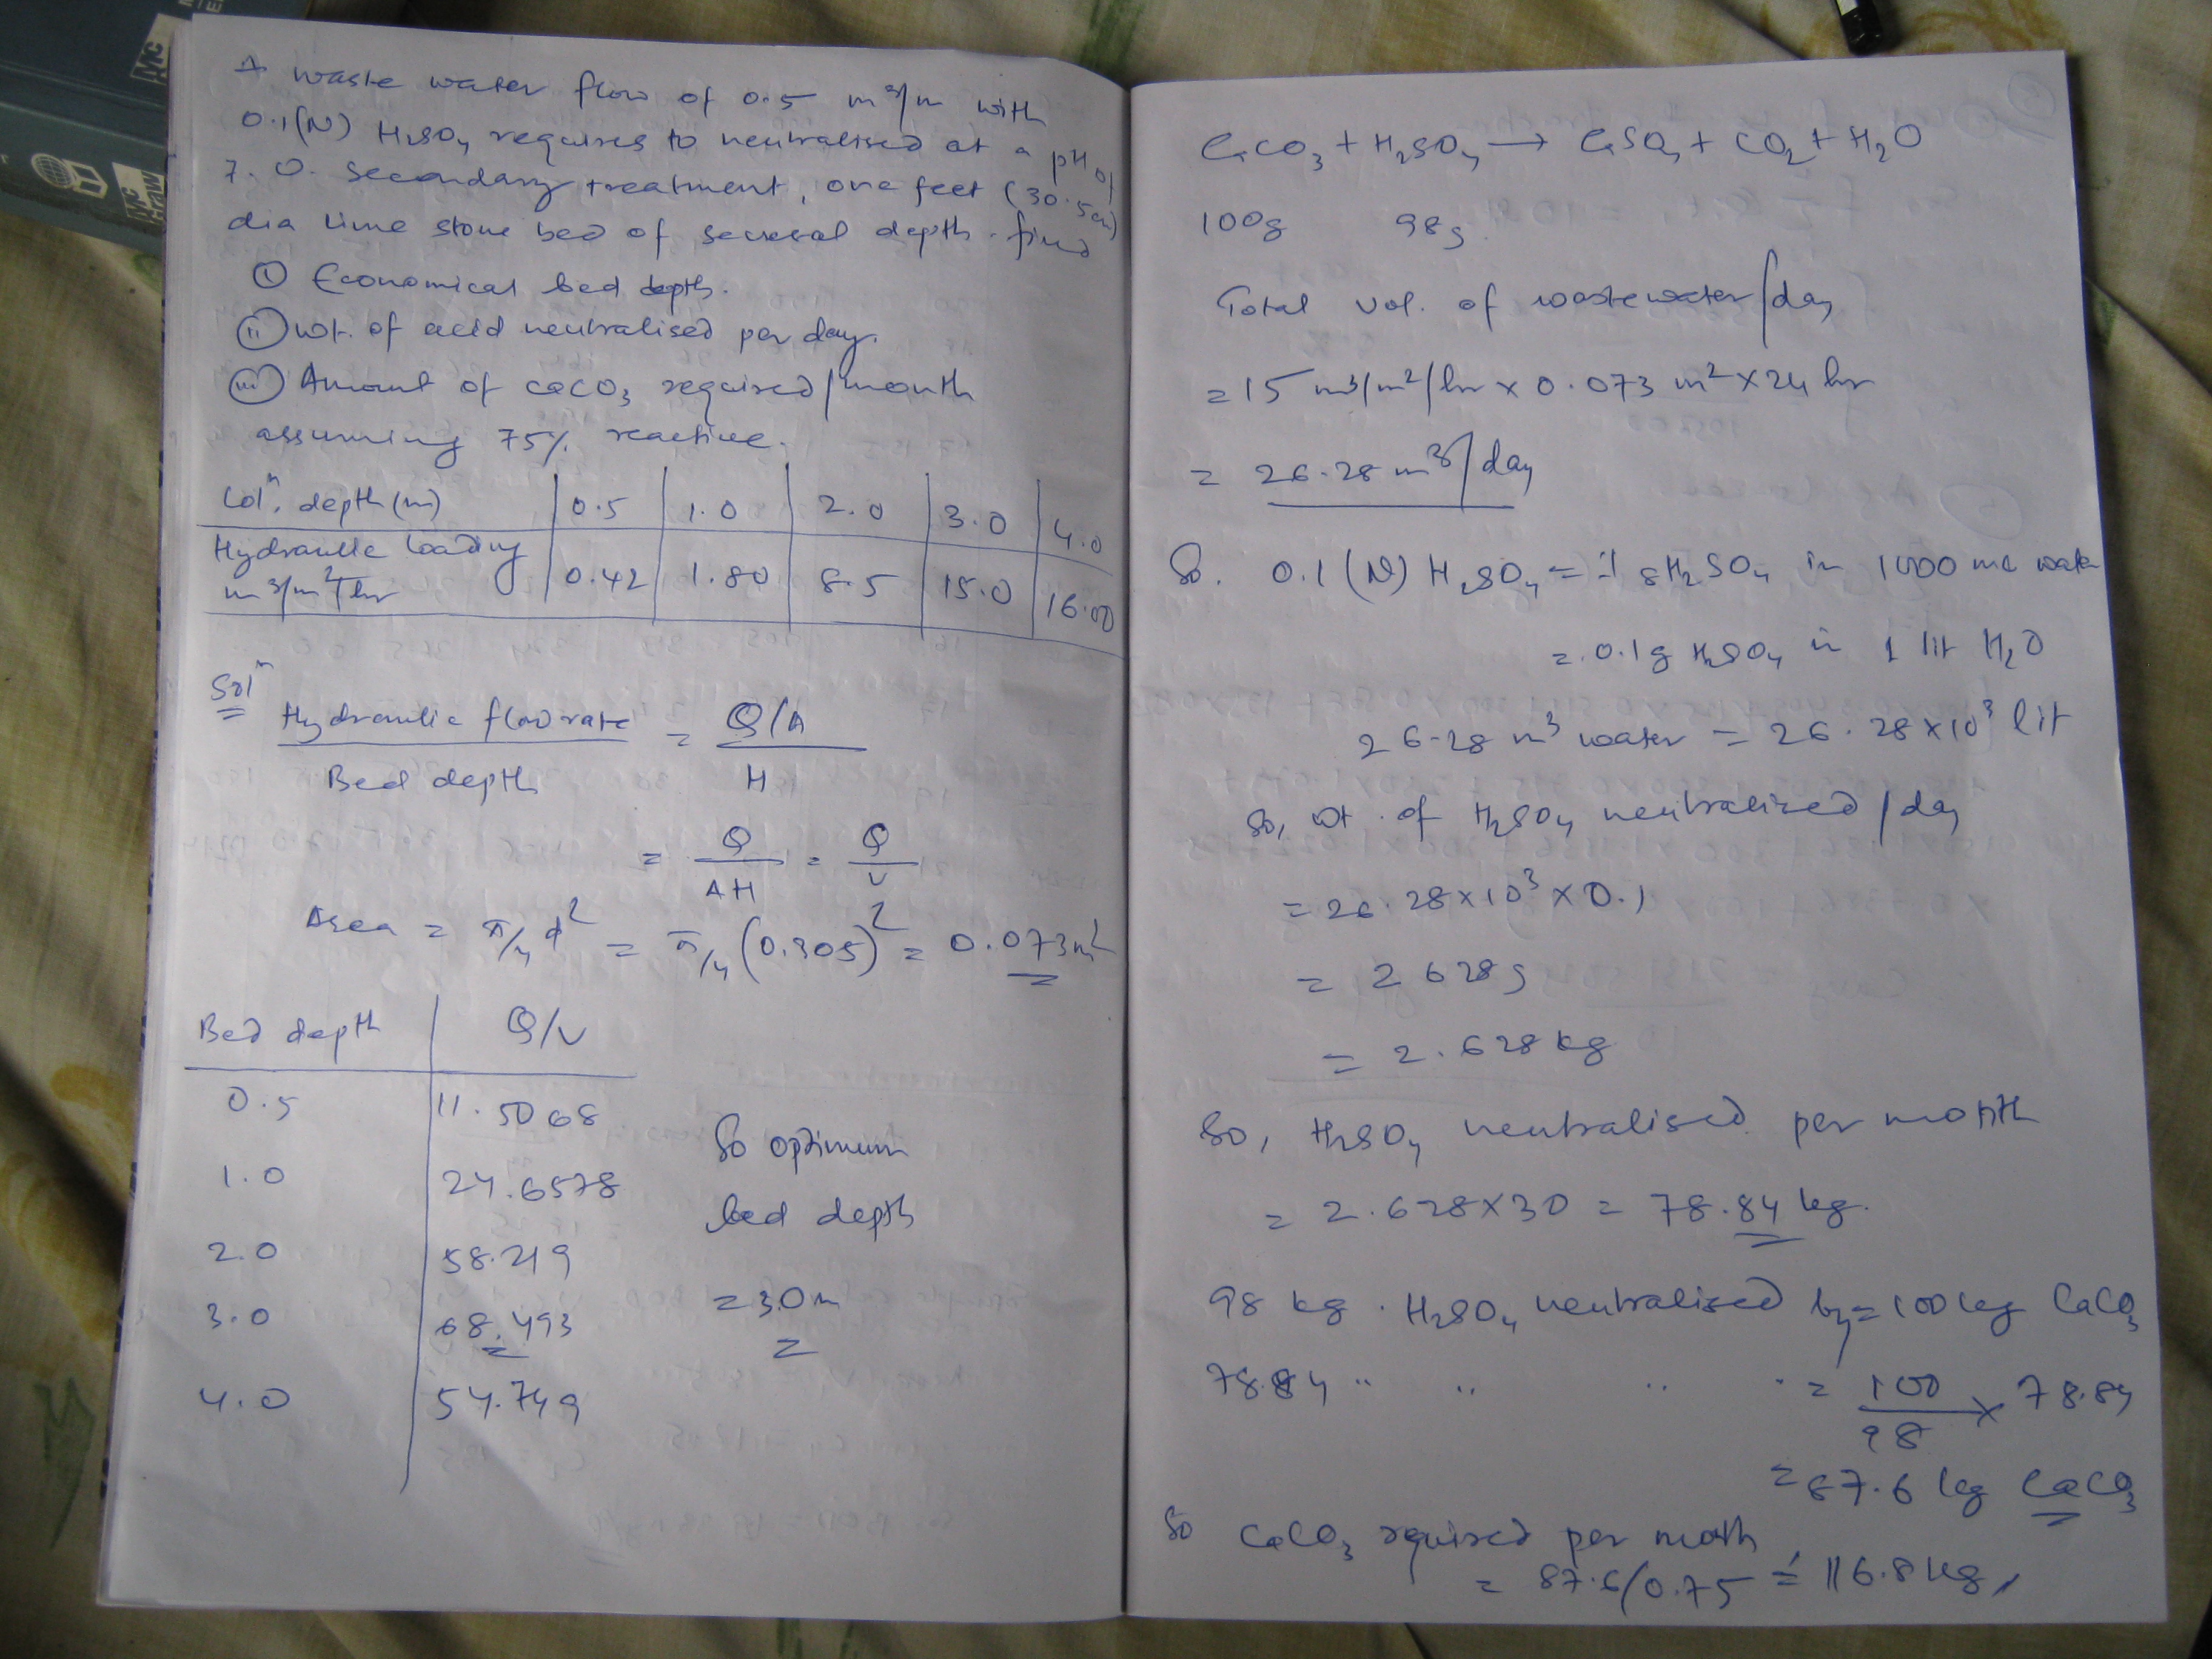 A waste water flow of 0.5 m³/m with
0.1(N) H₂SO₄ requires to neutralised at a pH of
7.0. Secondary treatment, one feet (30.5cm)
dia lime stone bed of several depth. find
(i) Economical bed depth.
(ii) wt. of acid neutralised per day.
(iii) Amount of CaCO₃ required/month
assuming 75% reactive.
Colⁿ. depth (m) | 0.5 | 1.0 | 2.0 | 3.0 | 4.0
Hydraulic loading m³/m²/hr | 0.42 | 1.80 | 8.5 | 15.0 | 16.00
Solⁿ
Hydraulic flow rate / Bed depth = Q/A / H
= Q/AH = Q/V
Area = π/4 d² = π/4 (0.305)² = 0.073m²
Bed depth | Q/V
0.5 | 11.5068
1.0 | 24.6578
2.0 | 58.219
3.0 | 68.493
4.0 | 54.749
So optimum
bed depth
= 3.0m
CaCO₃ + H₂SO₄ → CaSO₄ + CO₂ + H₂O
100g 98g
Total vol. of wastewater/day
= 15 m³/m²/hr × 0.073 m² × 24 hr
= 26.28 m³/day
So. 0.1(N) H₂SO₄ = .1 g H₂SO₄ in 1000 ml water
= 0.1g H₂SO₄ in 1 lit H₂O
26.28 m³ water = 26.28×10³ lit
So, wt. of H₂SO₄ neutralised/day
= 26.28×10³ × 0.1
= 2628g
= 2.628 kg
So, H₂SO₄ neutralised per month
= 2.628×30 = 78.84 kg.
98 kg. H₂SO₄ neutralised by = 100 kg CaCO₃
78.84 " " " " = 100/98 × 78.84
= 87.6 kg CaCO₃
So CaCO₃ required per month
= 87.6/0.75 = 116.8 kg
Mc
Graw